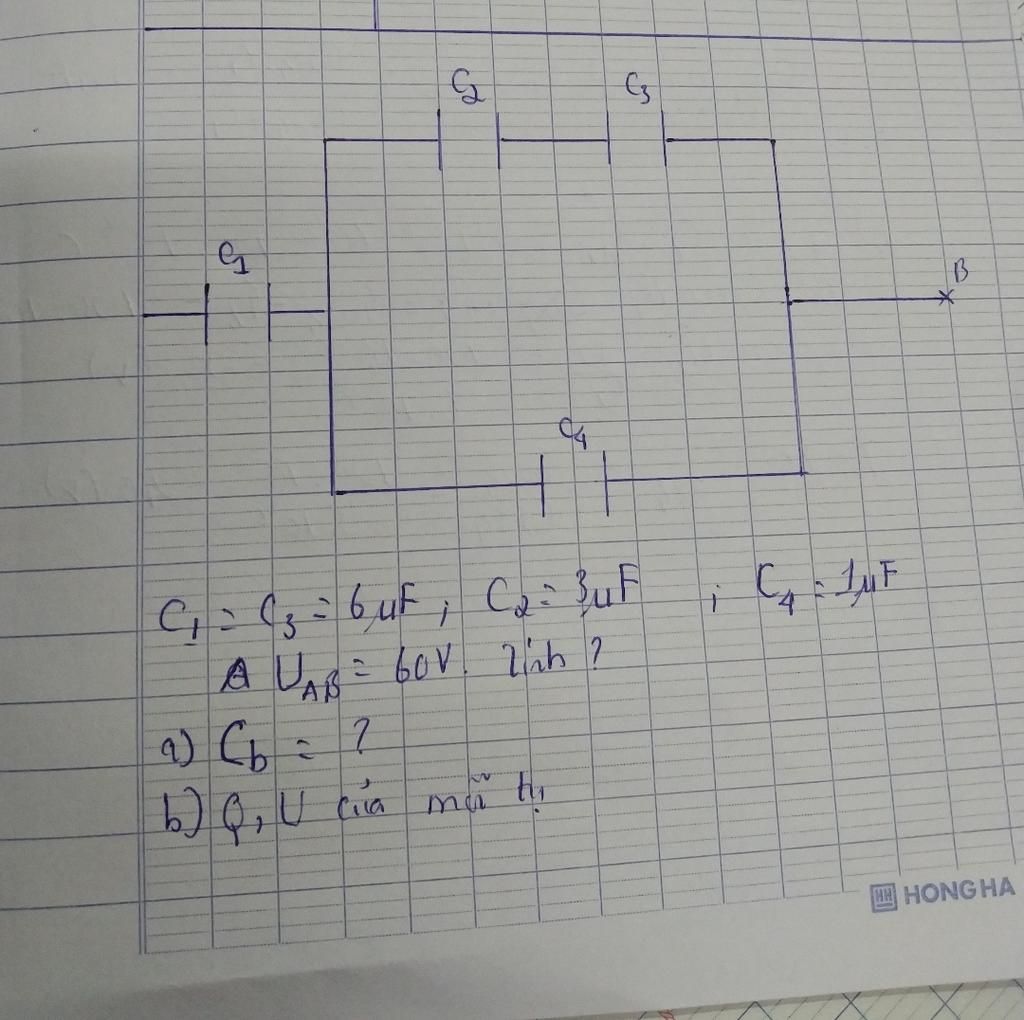 C2 C3
C1
B
C4
C1 = C3 = 6μF; C2 = 3μF ; C4 = 1μF
UAB = 60V. Tính ?
a) Cb = ?
b) Q, U của mỗi tụ
HH HONG HA